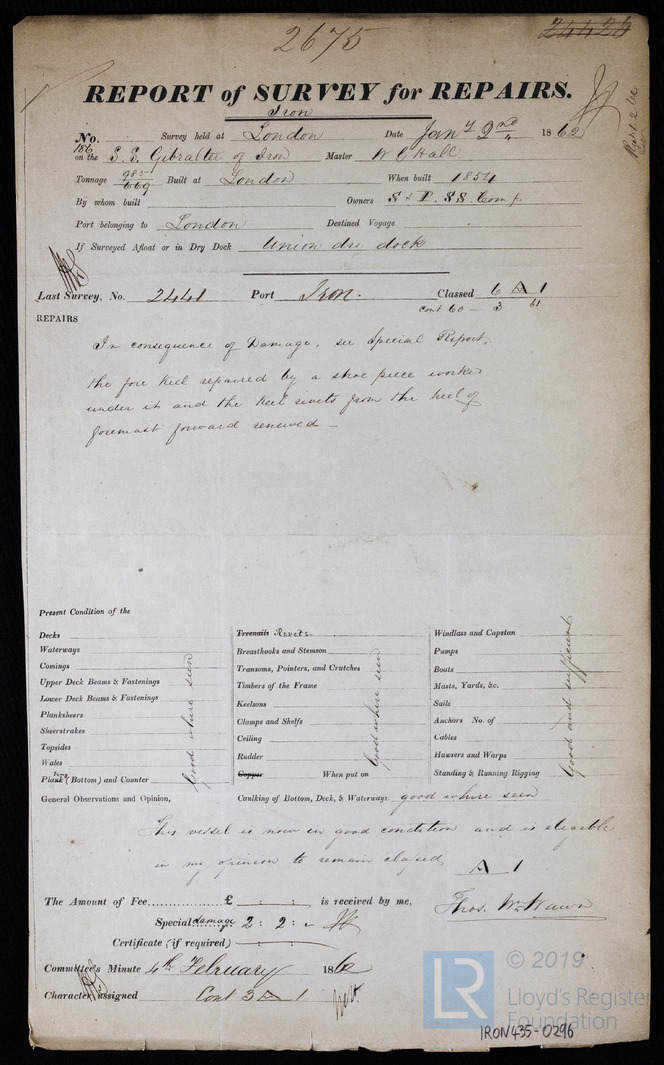 2675
24426
REPORT of SURVEY for REPAIRS.
Iron
No. 186 Survey held at London Date Jany 2nd 1862
on the S.S. Gibralter of Iron Master W C Hall
Tonnage 985/669 Built at London When built 1854
By whom built Owners S & P. SS. Comp
Port belonging to London Destined Voyage
If Surveyed Afloat or in Dry Dock Union dry dock
Last Survey, No. 2441 Port Iron. Classed 6 A 1
cont 60 – 3 61
REPAIRS
In consequence of Damage, see Special Report,
the fore keel repaired by a shoe piece worked
under it and the keel rivets from the heel of
foremast forward renewed –
Present Condition of the
Decks
Waterways
Comings
Upper Deck Beams & Fastenings
Lower Deck Beams & Fastenings
Planksheers
Sheerstrakes
Topsides
Wales
Plank (Bottom) and Counter
Good where seen
Treenails Rivets
Breasthooks and Stemson
Transoms, Pointers, and Crutches
Timbers of the Frame
Keelsons
Clamps and Shelfs
Ceiling
Rudder
Copper When put on
Good where seen
Windlass and Capstan
Pumps
Boats
Masts, Yards, &c.
Sails
Anchors No. of
Cables
Hawsers and Warps
Standing & Running Rigging
Good and sufficient
General Observations and Opinion, Caulking of Bottom, Deck, & Waterways good where seen
This vessel is now in good condition and is eligible
in my opinion to remain classed, A 1
The Amount of Fee £ : : is received by me, Thos. Wm Wawn
Special damage 2 : 2 : –
Certificate (if required) – : :
Committee's Minute 4th February 1862
Character assigned Cont 3 A 1
© 2019
LR
Lloyd's Register
Foundation
IRON435-0296